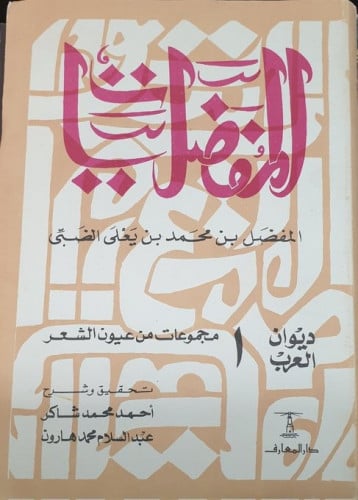 المفضليات
المفضل بن محمد بن يعلى الضبى
ديوان العرب
١ مجموعات من عيون الشعر
تحقيق وشرح
أحمد محمد شاكر
عبد السلام محمد هارون
دار المعارف